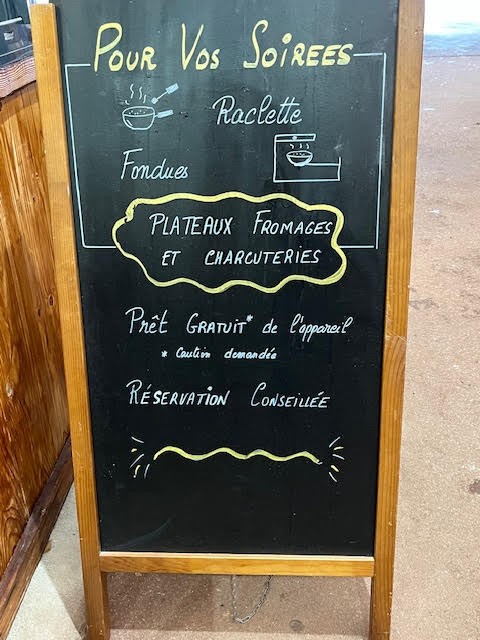 POUR VOS SOIREES
Raclette
Fondues
PLATEAUX FROMAGES
ET CHARCUTERIES
Prêt GRATUIT* de l'appareil
* Caution demandée
RÉSERVATION CONSEILLÉE